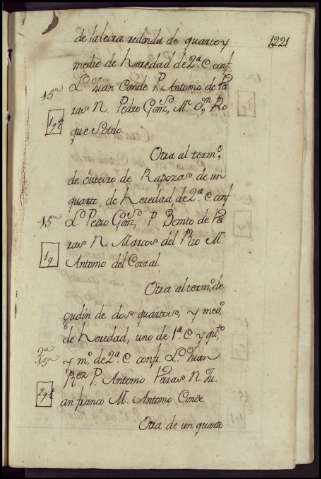 de la leira redonda de quarto y 1221
medio de heredad de 2ª C conf.
Lº Juan Conde P. Antonio de Pa
ras N. Pedro Gonz.s M.
que Sotelo
Otra al term.º
de outeiro de Raposas de un
quarto de heredad de 2ª C conf
15.n Lº Pedro Gonz.s P. Benito de Pa
ras N. Marcos del Rio M.
Antonio del Corral.
Otra al term.º de
oudin de dos quartos, y med.º
de heredad, uno de 1ª C y
y m.º de 2ª C conf. Lº Juan
P. Antonio Paras N. Ju
an franco M. Antonio Conde
Otra de un quarto